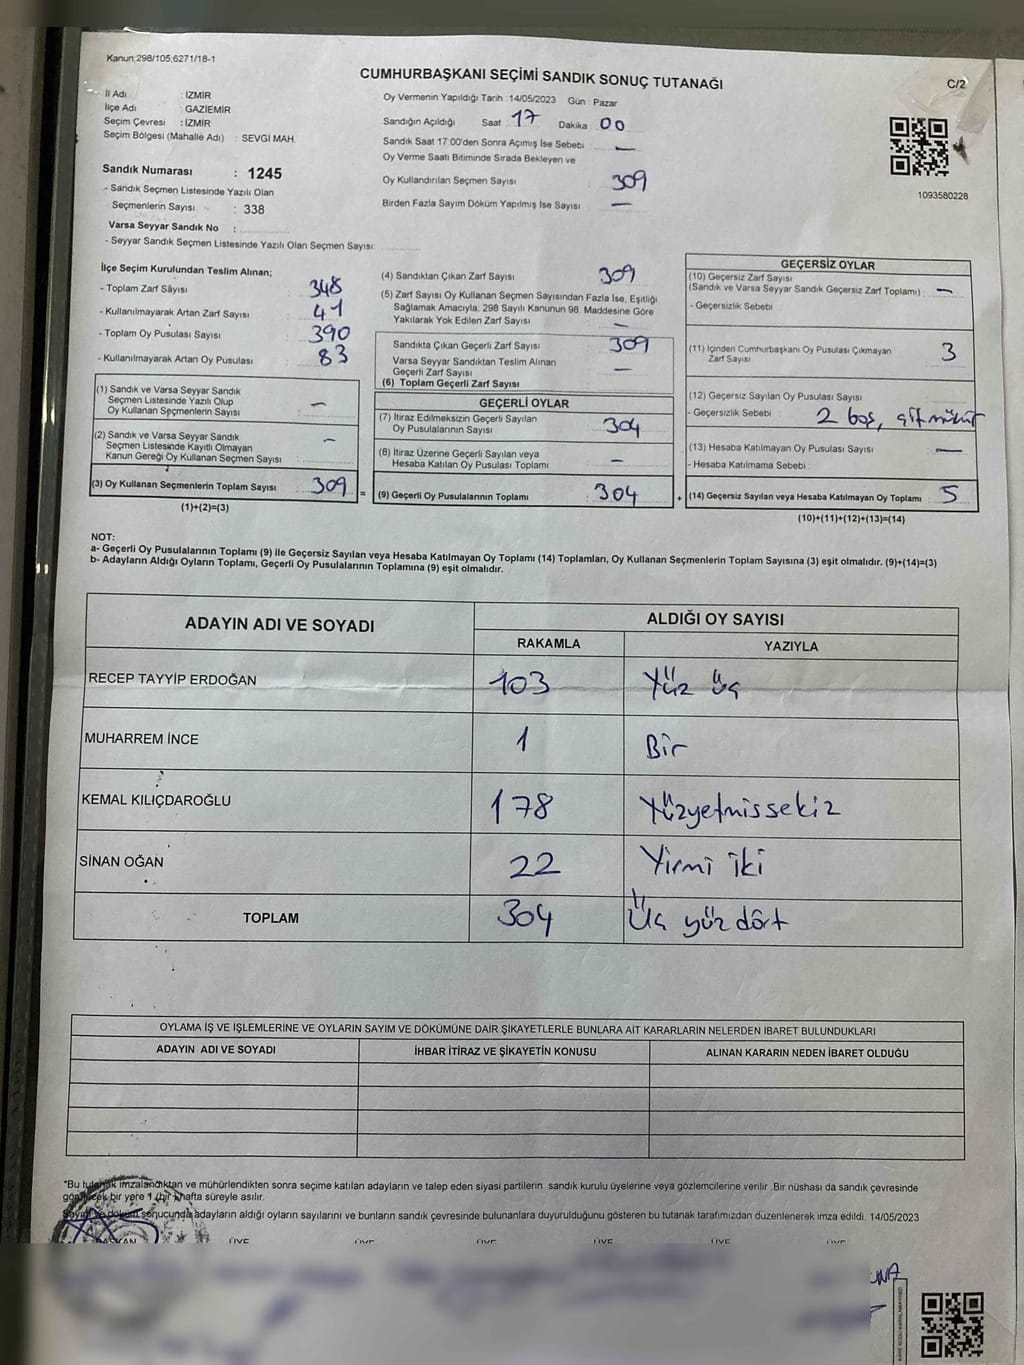 Kanun;298/105;6271/18-1
CUMHURBAŞKANI SEÇİMİ SANDIK SONUÇ TUTANAĞI
C/2
İl Adı : İZMİR
İlçe Adı : GAZİEMİR
Seçim Çevresi : İZMİR
Seçim Bölgesi (Mahalle Adı) : SEVGİ MAH.
Sandık Numarası : 1245
- Sandık Seçmen Listesinde Yazılı Olan
Seçmenlerin Sayısı : 338
Varsa Seyyar Sandık No :
- Seyyar Sandık Seçmen Listesinde Yazılı Olan Seçmen Sayısı:
Oy Vermenin Yapıldığı Tarih : 14/05/2023 Gün : Pazar
Sandığın Açıldığı Saat : 17 Dakika : 00
Sandık Saat 17:00'den Sonra Açımış İse Sebebi —
Oy Verme Saati Bitiminde Sırada Bekleyen ve
Oy Kullandırılan Seçmen Sayısı 309
Birden Fazla Sayım Döküm Yapılmış İse Sayısı —
1093580228
İlçe Seçim Kurulundan Teslim Alınan;
- Toplam Zarf Sayısı 348
- Kullanılmayarak Artan Zarf Sayısı 41
- Toplam Oy Pusulası Sayısı 390
- Kullanılmayarak Artan Oy Pusulası 83
(1) Sandık ve Varsa Seyyar Sandık
Seçmen Listesinde Yazılı Olup
Oy Kullanan Seçmenlerin Sayısı —
(2) Sandık ve Varsa Seyyar Sandık
Seçmen Listesinde Kayıtlı Olmayan
Kanun Gereği Oy Kullanan Seçmen Sayısı —
(3) Oy Kullanan Seçmenlerin Toplam Sayısı 309 =
(1)+(2)=(3)
(4) Sandıktan Çıkan Zarf Sayısı 309
(5) Zarf Sayısı Oy Kullanan Seçmen Sayısından Fazla İse, Eşitliği
Sağlamak Amacıyla, 298 Sayılı Kanunun 98. Maddesine Göre
Yakılarak Yok Edilen Zarf Sayısı —
Sandıkta Çıkan Geçerli Zarf Sayısı 309
Varsa Seyyar Sandıktan Teslim Alınan
Geçerli Zarf Sayısı —
(6) Toplam Geçerli Zarf Sayısı
GEÇERLİ OYLAR
(7) İtiraz Edilmeksizin Geçerli Sayılan
Oy Pusulalarının Sayısı 304
(8) İtiraz Üzerine Geçerli Sayılan veya
Hesaba Katılan Oy Pusulası Toplamı —
(9) Geçerli Oy Pusulalarının Toplamı 304 +
GEÇERSİZ OYLAR
(10) Geçersiz Zarf Sayısı
(Sandık ve Varsa Seyyar Sandık Geçersiz Zarf Toplamı) : —
- Geçersizlik Sebebi
(11) İçinden Cumhurbaşkanı Oy Pusulası Çıkmayan
Zarf Sayısı 3
(12) Geçersiz Sayılan Oy Pusulası Sayısı
- Geçersizlik Sebebi : 2 boş, çift mühür
(13) Hesaba Katılmayan Oy Pusulası Sayısı —
- Hesaba Katılmama Sebebi :
(14) Geçersiz Sayılan veya Hesaba Katılmayan Oy Toplamı 5
(10)+(11)+(12)+(13)=(14)
NOT:
a- Geçerli Oy Pusulalarının Toplamı (9) ile Geçersiz Sayılan veya Hesaba Katılmayan Oy Toplamı (14) Toplamları, Oy Kullanan Seçmenlerin Toplam Sayısına (3) eşit olmalıdır. (9)+(14)=(3)
b- Adayların Aldığı Oyların Toplamı, Geçerli Oy Pusulalarının Toplamına (9) eşit olmalıdır.
ADAYIN ADI VE SOYADI
ALDIĞI OY SAYISI
RAKAMLA YAZIYLA
RECEP TAYYİP ERDOĞAN 103 Yüz üç
MUHARREM İNCE 1 Bir
KEMAL KILIÇDAROĞLU 178 Yüzyetmişsekiz
SİNAN OĞAN 22 Yirmi iki
TOPLAM 304 Üç yüz dört
OYLAMA İŞ VE İŞLEMLERİNE VE OYLARIN SAYIM VE DÖKÜMÜNE DAİR ŞİKAYETLERLE BUNLARA AİT KARARLARIN NELERDEN İBARET BULUNDUKLARI
ADAYIN ADI VE SOYADI İHBAR İTİRAZ VE ŞİKAYETİN KONUSU ALINAN KARARIN NEDEN İBARET OLDUĞU
*Bu tutanak imzalandıktan ve mühürlendikten sonra seçime katılan adayların ve talep eden siyasi partilerin sandık kurulu üyelerine veya gözlemcilerine verilir .Bir nüshası da sandık çevresinde
görülecek bir yere 1 (bir) hafta süreyle asılır.
Sayım ve döküm sonucunda adayların aldığı oyların sayılarını ve bunların sandık çevresinde bulunanlara duyurulduğunu gösteren bu tutanak tarafımızdan düzenlenerek imza edildi. 14/05/2023
BAŞKAN ÜYE ÜYE ÜYE ÜYE ÜYE ÜYE